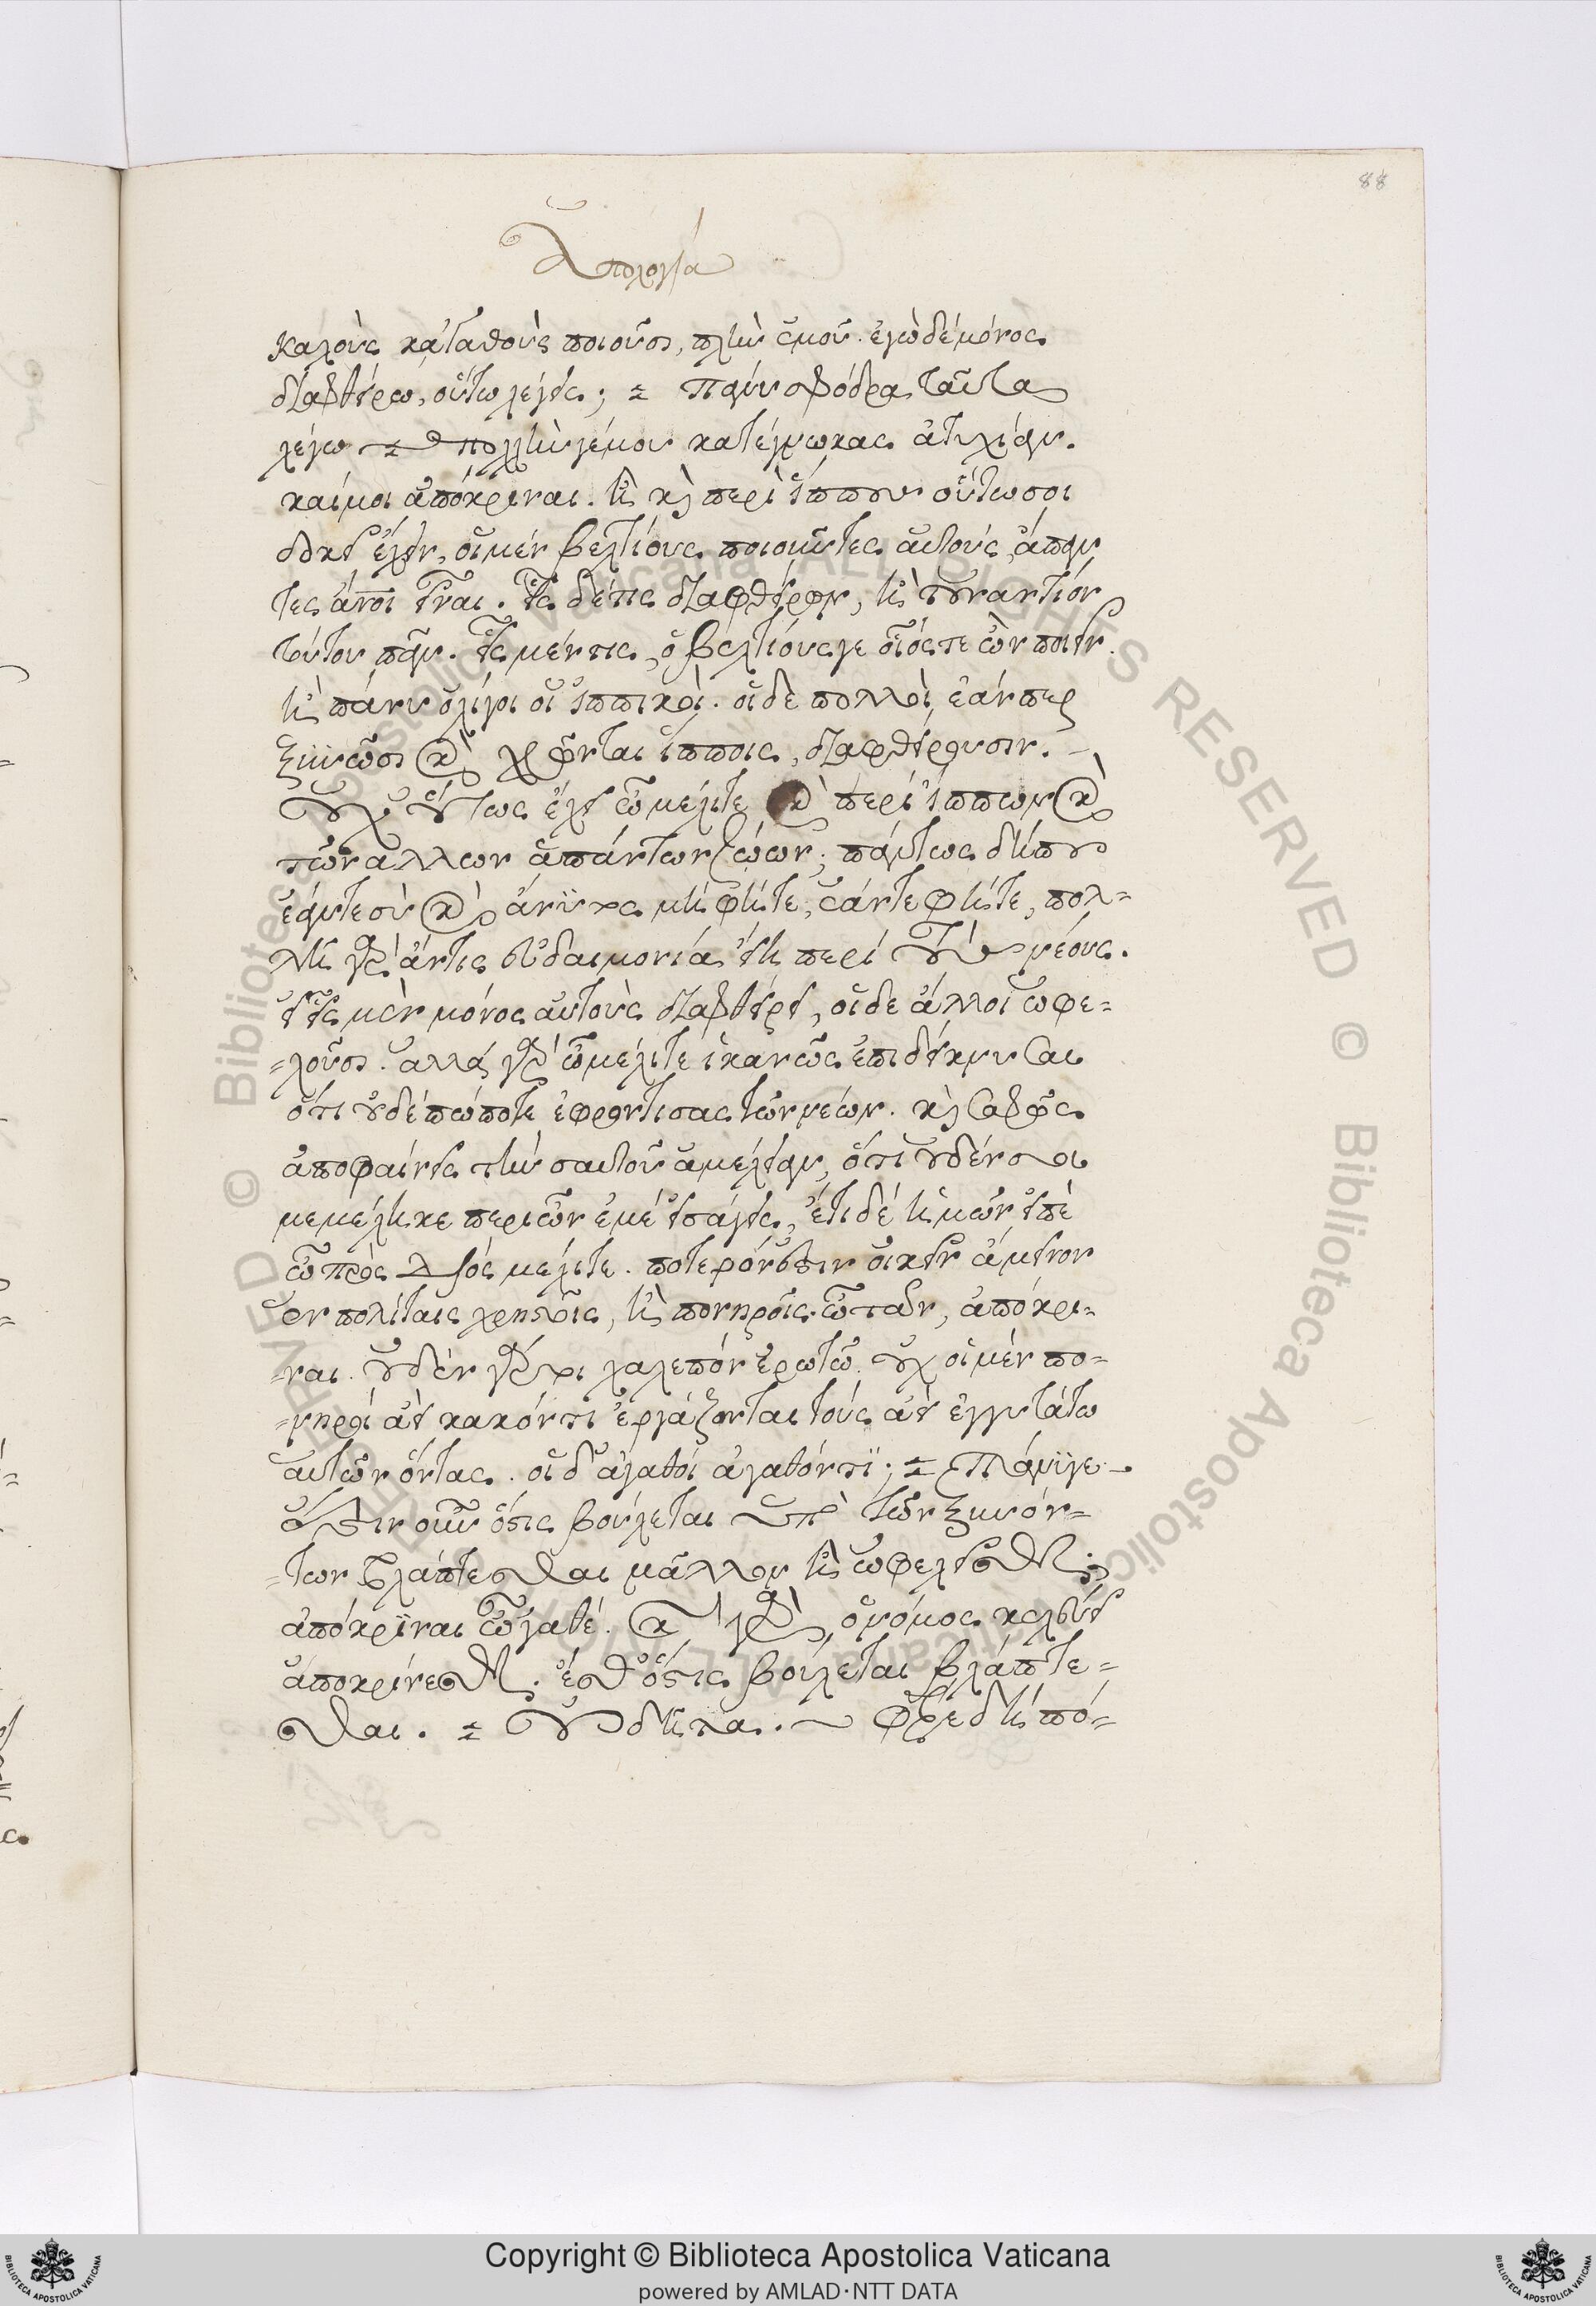 88
Ἀπολογία
καλοὺς κἀγαθοὺς ποιοῦσι, πλὴν ἐμοῦ. ἐγὼ δέ μόνος
διαφθείρω, οὕτω λέγεις; Πάνυ σφόδρα ταῦτα
λέγω πολλὴν γέμου κατέγνωκας ἀτυχίαν.
καίμοι ἀπόκριναι. ἦ καὶ περὶ ἵππους οὕτω σοι
δοκεῖ ἔχειν, οἱ μέν βελτίους ποιοῦντες αὐτούς, ἅπαν
τες ἄνοι εἶναι. εἷς δέ τις διαφθείρων, ἢ τοὐναντίον
τούτου πᾶν. εἷς μέν τις, ὁ βελτίους γε οἷός τε ὢν ποιεῖν.
ἢ πάνυ ὀλίγοι οἱ ἱππικοὶ. οἱ δὲ πολλοὶ, ἐάν περ
ξυνῶσι καὶ χρῶνται ἵπποις, διαφθείρουσιν.
Οὐχ οὕτως ἔχει ὦ μέλιτε καὶ περὶ ἵππων καὶ
τῶν ἄλλων ἁπάντων ζώων; πάντως δήπου
ἐάν τε σὺ καὶ ἄνϋτος μὴ φῆτε, ἐάν τε φῆτε, πολ=
λὴ γὰρ ἄν τις εὐδαιμονία εἴη περί τοὺς νέους.
εἰ εἷς μὲν μόνος αὐτοὺς διαφθείρει, οἱ δε ἄλλοι ὠφε=
=λοῦσι. ἀλλά γὰρ ὦ μέλιτε ἱκανῶς ἐπιδείκνυσαι
ὅτι οὐδέ πώποτε ἐφρόντισας τῶν νέων. καὶ σαφῶς
ἀποφαίνεις τὴν σαυτοῦ ἀμέλειαν, ὅτι οὐδέν σοι
μεμέληκε περὶ ὧν ἐμέ εἰσάγεις, ἔτι δέ ἡμῶν εἰπὲ
ὦ πρὸς Διός μέλιτε. ποτερόν ἐστιν οἰκεῖν ἄμεινον
ἐν πολίταις χρηστοῖς, ἢ πονηροῖς. ὦ τᾶν, ἀπόκρι=
=ναι. οὐδὲν γάρ τοι χαλεπόν ἐρωτῶ. οὐχ οἱ μέν πο=
=νηροί ἀεί κακόν τι ἐργάζονται τούς ἀεί ἐγγυτάτω
αὐτῶν ὄντας. οἱ δ' ἀγαθοί ἀγαθόν τϊ; Πάνϋγε
ἔστιν οὖν ὅστις βούλεται ὑπὸ τῶν ξυνόν=
=των βλάπτεσθαι μᾶλλον ἢ ὠφελεῖσθαι;
ἀπόκρϊναι ὦγαθέ. καὶ γὰρ ὁ νόμος κελεύει
ἀποκρίνεσθαι. ἔσθ' ὅστις βούλεται βλάπτε=
σθαι. Οὐ δῆτα. φέρε δή πό=
Copyright © Biblioteca Apostolica Vaticana
powered by AMLAD·NTT DATA